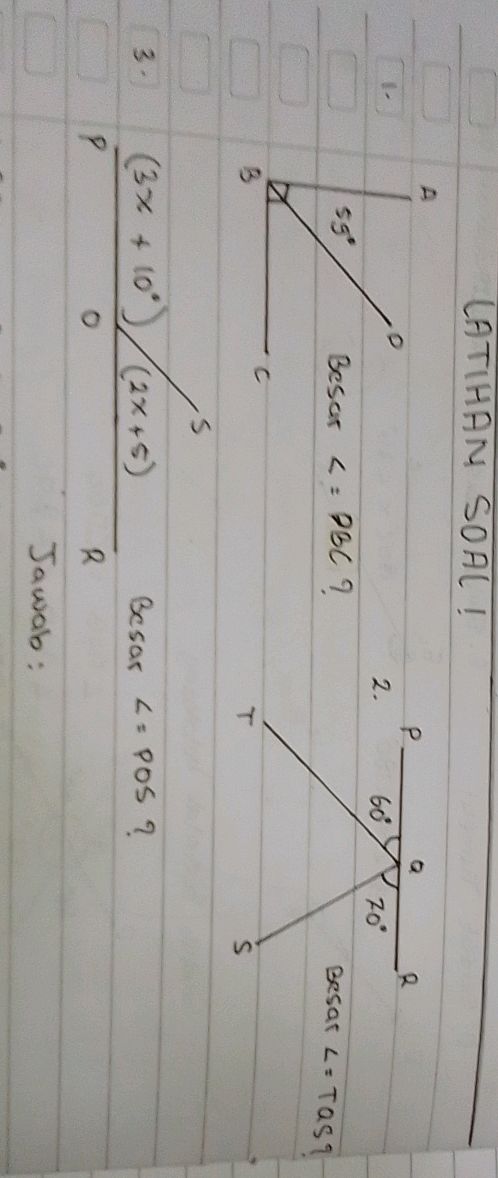 LATIHAN SOAL!
1. A 2. P Q R
59° D 60° 70°
Besar <= DBC? Besar <= TQS?
B C T S
S
3. (3x + 10°) (2x+5) Besar <= POS?
P O R
Jawab: